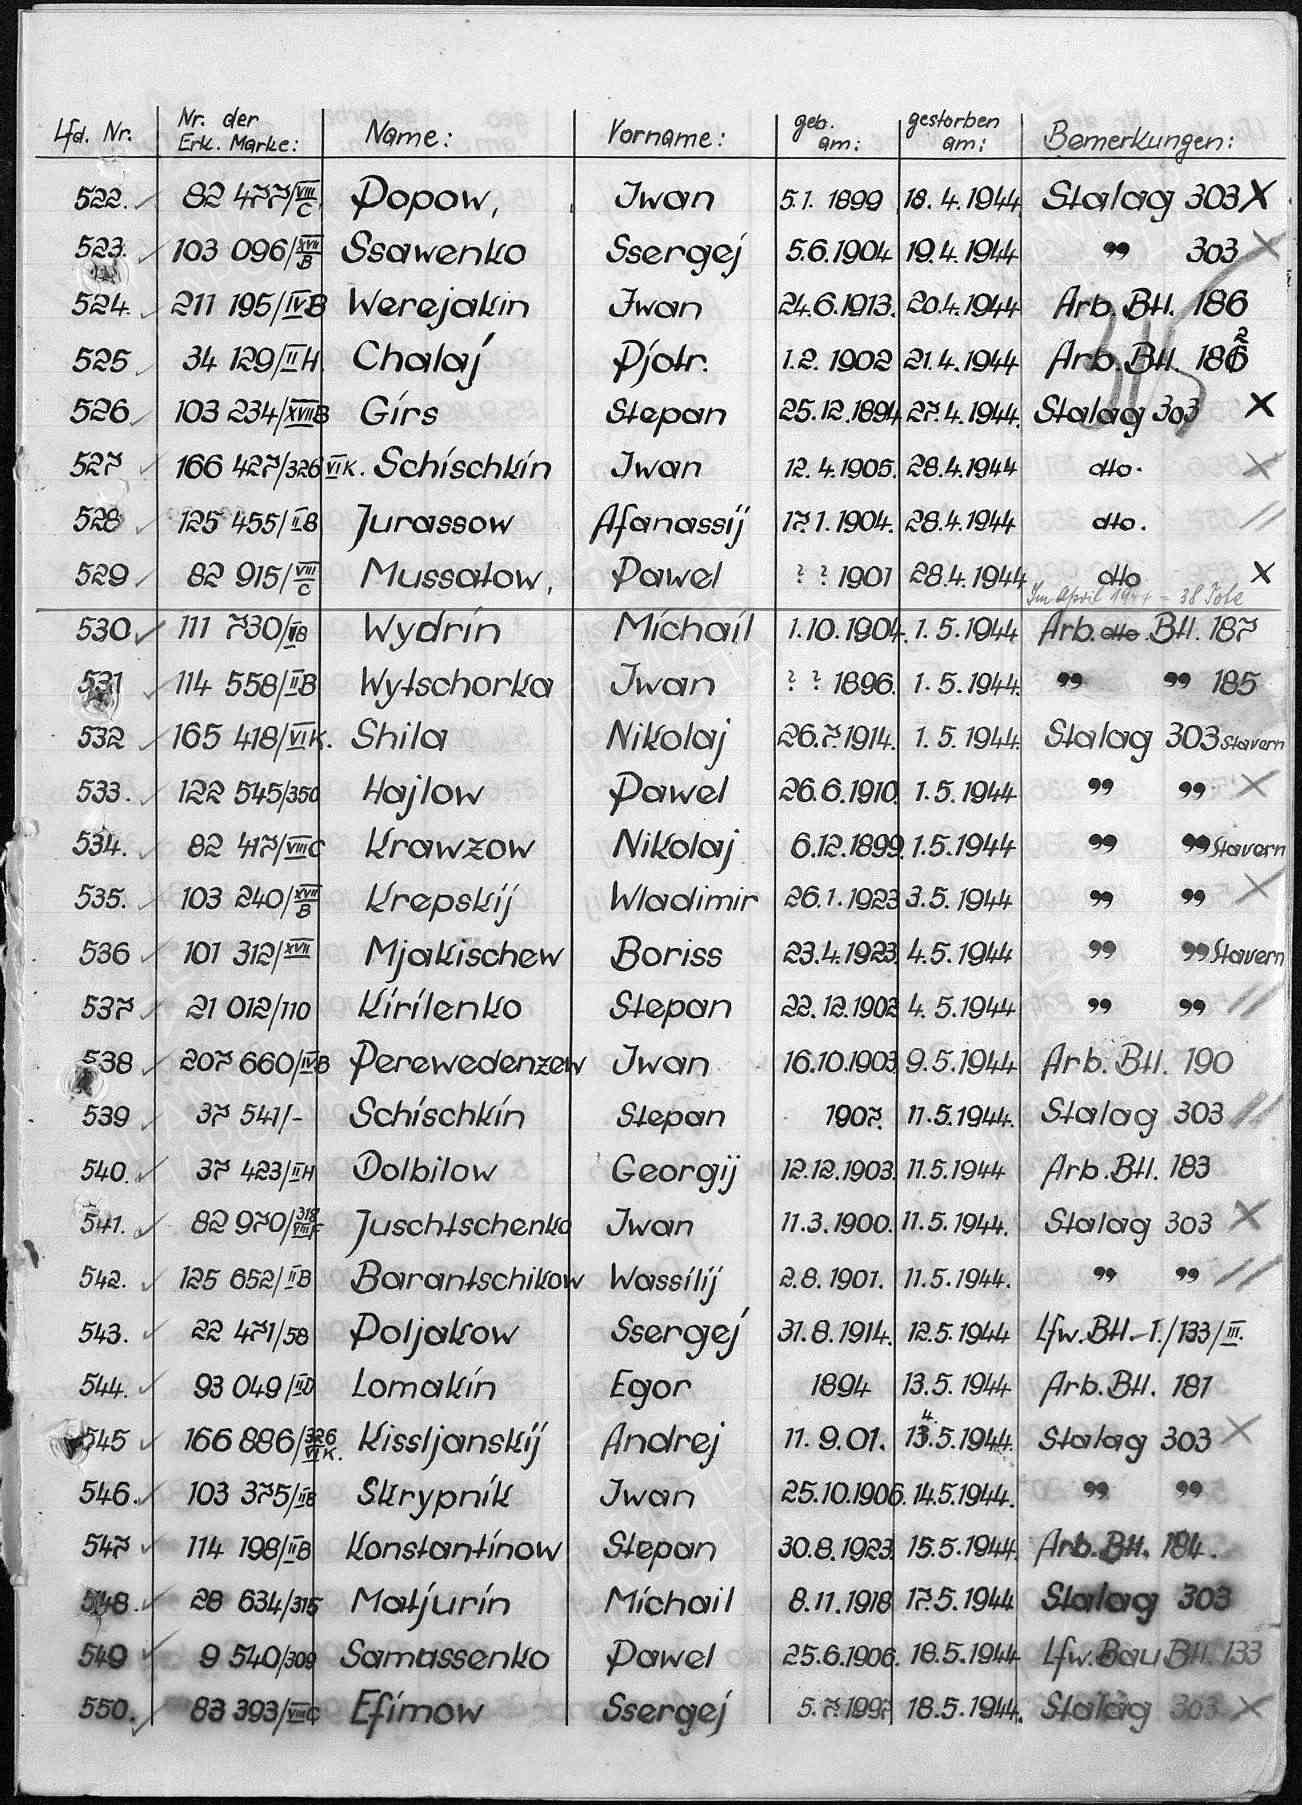 Lfd. Nr. Nr. der Erk. Marke: Name: Vorname: geb. am: gestorben am: Bemerkungen:
522. 82 477/VIII C Popow, Iwan 5.1.1899 18.4.1944 Stalag 303 X
523. 103 096/XVII B Ssawenko Ssergej 5.6.1904 19.4.1944 " 303 X
524. 211 195/IV B Werejakin Iwan 24.6.1913. 20.4.1944 Arb. Btl. 186
525 34 129/II H. Chalaj Pjotr. 1.2.1902 21.4.1944 Arb. Btl. 186 2
526 103 234/XVII B Girs Stepan 25.12.1894 27.4.1944. Stalag 303 X
527 166 427/326 VI K. Schischkin Iwan 12.4.1905. 28.4.1944 dto. X
528 125 455/II B Jurassow Afanassij 17.1.1904. 28.4.1944 dto. //
529 82 915/VIII C Mussatow, Pawel ? ? 1901 28.4.1944 dto X
Im April 1944 = 38 Tote
530 111 730/II B Wydrin Michail 1.10.1904. 1.5.1944 Arb. dto. Btl. 187
531 114 558/II B Wytschorka Iwan ? ? 1896. 1.5.1944. " " 185
532 165 418/VI K. Shila Nikolaj 26.7.1914. 1.5.1944. Stalag 303 Stavern
533. 122 545/350 Hajlow Pawel 26.6.1910. 1.5.1944 " " X
534. 82 417/VIII C Krawzow Nikolaj 6.12.1899. 1.5.1944 " " Stavern
535. 103 240/XVII B Krepskij Wladimir 26.1.1923 3.5.1944 " " X
536 101 312/XVII Mjakischew Boriss 23.4.1923 4.5.1944 " " Stavern
537 21 012/110 Kirilenko Stepan 22.12.1902 4.5.1944 " " //
538 207 660/IV B Perewedenzew Iwan 16.10.1903 9.5.1944 Arb. Btl. 190
539 37 541/- Schischkin Stepan 1907. 11.5.1944. Stalag 303 //
540. 37 423/II H Dolbilow Georgij 12.12.1903. 11.5.1944 Arb. Btl. 183
541. 82 970/318 VIII F Juschtschenko Iwan 11.3.1900. 11.5.1944. Stalag 303 X
542. 125 652/II B Barantschikow Wassilij 2.8.1901. 11.5.1944. " " //
543. 22 471/58 Poljakow Ssergej 31.8.1914. 12.5.1944 Lfw. Btl.-I./133/III.
544. 93 049/II D Lomakin Egor 1894 13.5.1944 Arb. Btl. 181
545 166 886/326 VI K. Kissljanskij Andrej 11.9.01. 13.5.1944. 4. Stalag 303 X
546. 103 375/II B Skrypnik Iwan 25.10.1906. 14.5.1944. " "
547 114 198/II B Konstantinow Stepan 30.8.1923. 15.5.1944. Arb. Btl. 184.
548. 28 634/315 Matjurin Michail 8.11.1918 17.5.1944 Stalag 303
549 9 540/309 Samassenko Pawel 25.6.1906. 18.5.1944 Lfw. Bau Btl. 133
550. 83 393/VIII C Efimow Ssergej 5.7. 18.5.1944. Stalag 303 X